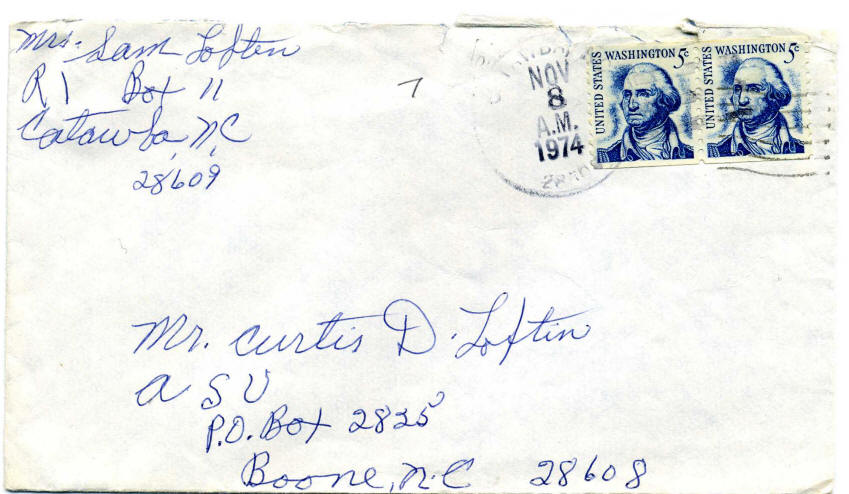 Mrs. Sam Loftin
R 1 Box 11
Catawba, N.C
28609
NOV
8
A.M.
1974
UNITED STATES WASHINGTON 5c
UNITED STATES WASHINGTON 5c
Mr. Curtis D. Loftin
A S U
P.O. Box 2825
Boone, N.C 28608